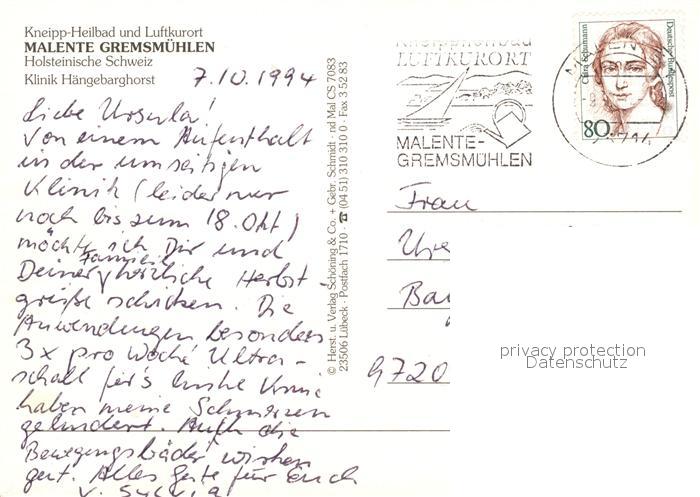 Kneipp-Heilbad und Luftkurort
MALENTE GREMSMÜHLEN
Holsteinische Schweiz
Klinik Hängebarghorst
7.10.1994
Liebe Ursula!
Von einem Aufenthalt
in der umseitigen
Klinik (leider nur
noch bis zum 18. Okt)
möchte ich Dir und
Deiner Familie herzliche Herbst-
grüße schicken. Die
Anwendungen, besonders
3x pro Woche Ultra-
schall für's linke Knie
haben meine Schmerzen
gelindert. Auch die
Bewegungsbäder wirken
gut. Alles Gute für Euch
v. Sylvia
© Herst. u. Verlag Schöning & Co. + Gebr. Schmidt · nd Mal CS 7083
23506 Lübeck · Postfach 1710 · ☎ (04 51) 310 310 0 · Fax 3 52 83
Kneippheilbad
LUFTKURORT
MALENTE-
GREMSMÜHLEN
Clara Schumann
Deutsche Bundespost
80
Frau
Ba
privacy protection
Datenschutz